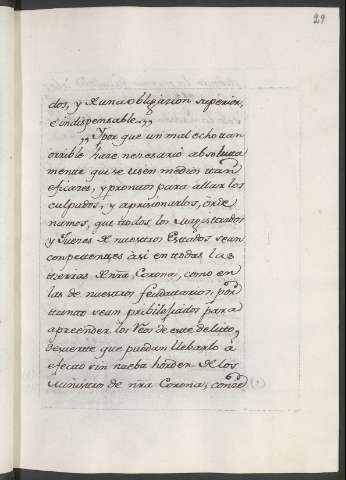 29
dos, y de una obligazion superior,
é indispensable.,,
,,Y por que un mal echo tan
orrible haze nenesario absoluta
mente qui se usen medios tan
eficazes, y prontos para allar los
culpados, y aprisionarlos, orde
namos, que todos los Magistrados
y Juezes de nuestros Estados sean
conpetentes asi en todas las
tierras de ntra Corona, como en
las de nuestros feudatarios, por
tanto sean pribilegiados para
apreender los Reos de este delito,
de suerte que puedan llebarlo à
efecto sin nueba horden de los
Ministros de nra Corona; conzé